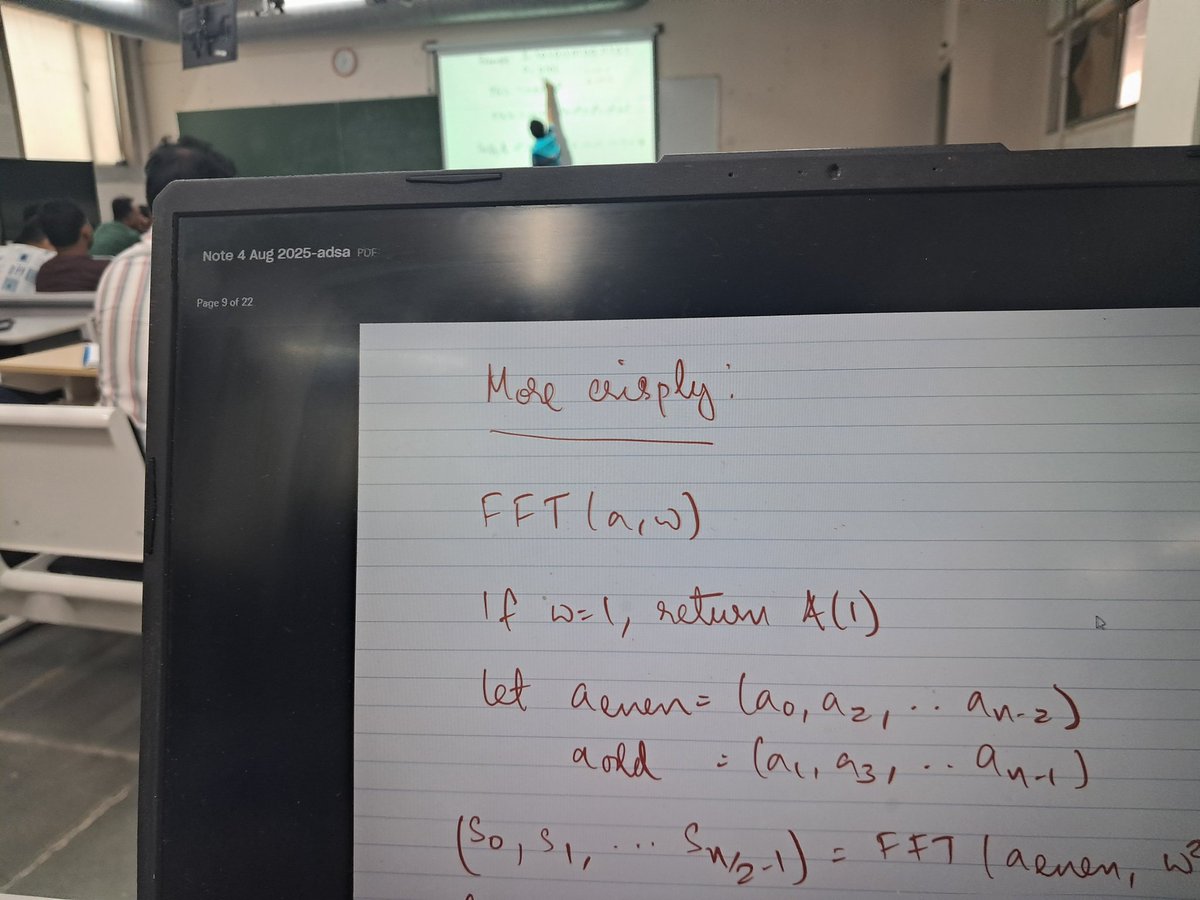 Note 4 Aug 2025-adsa PDF
Page 9 of 22
More crisply:
FFT (a, w)
If w=1, return A(1)
let aeven= (a0, a2, .. an-2)
aodd = (a1, a3, .. an-1)
(S0, S1, ... Sn/2-1) = FFT (aeven, w2